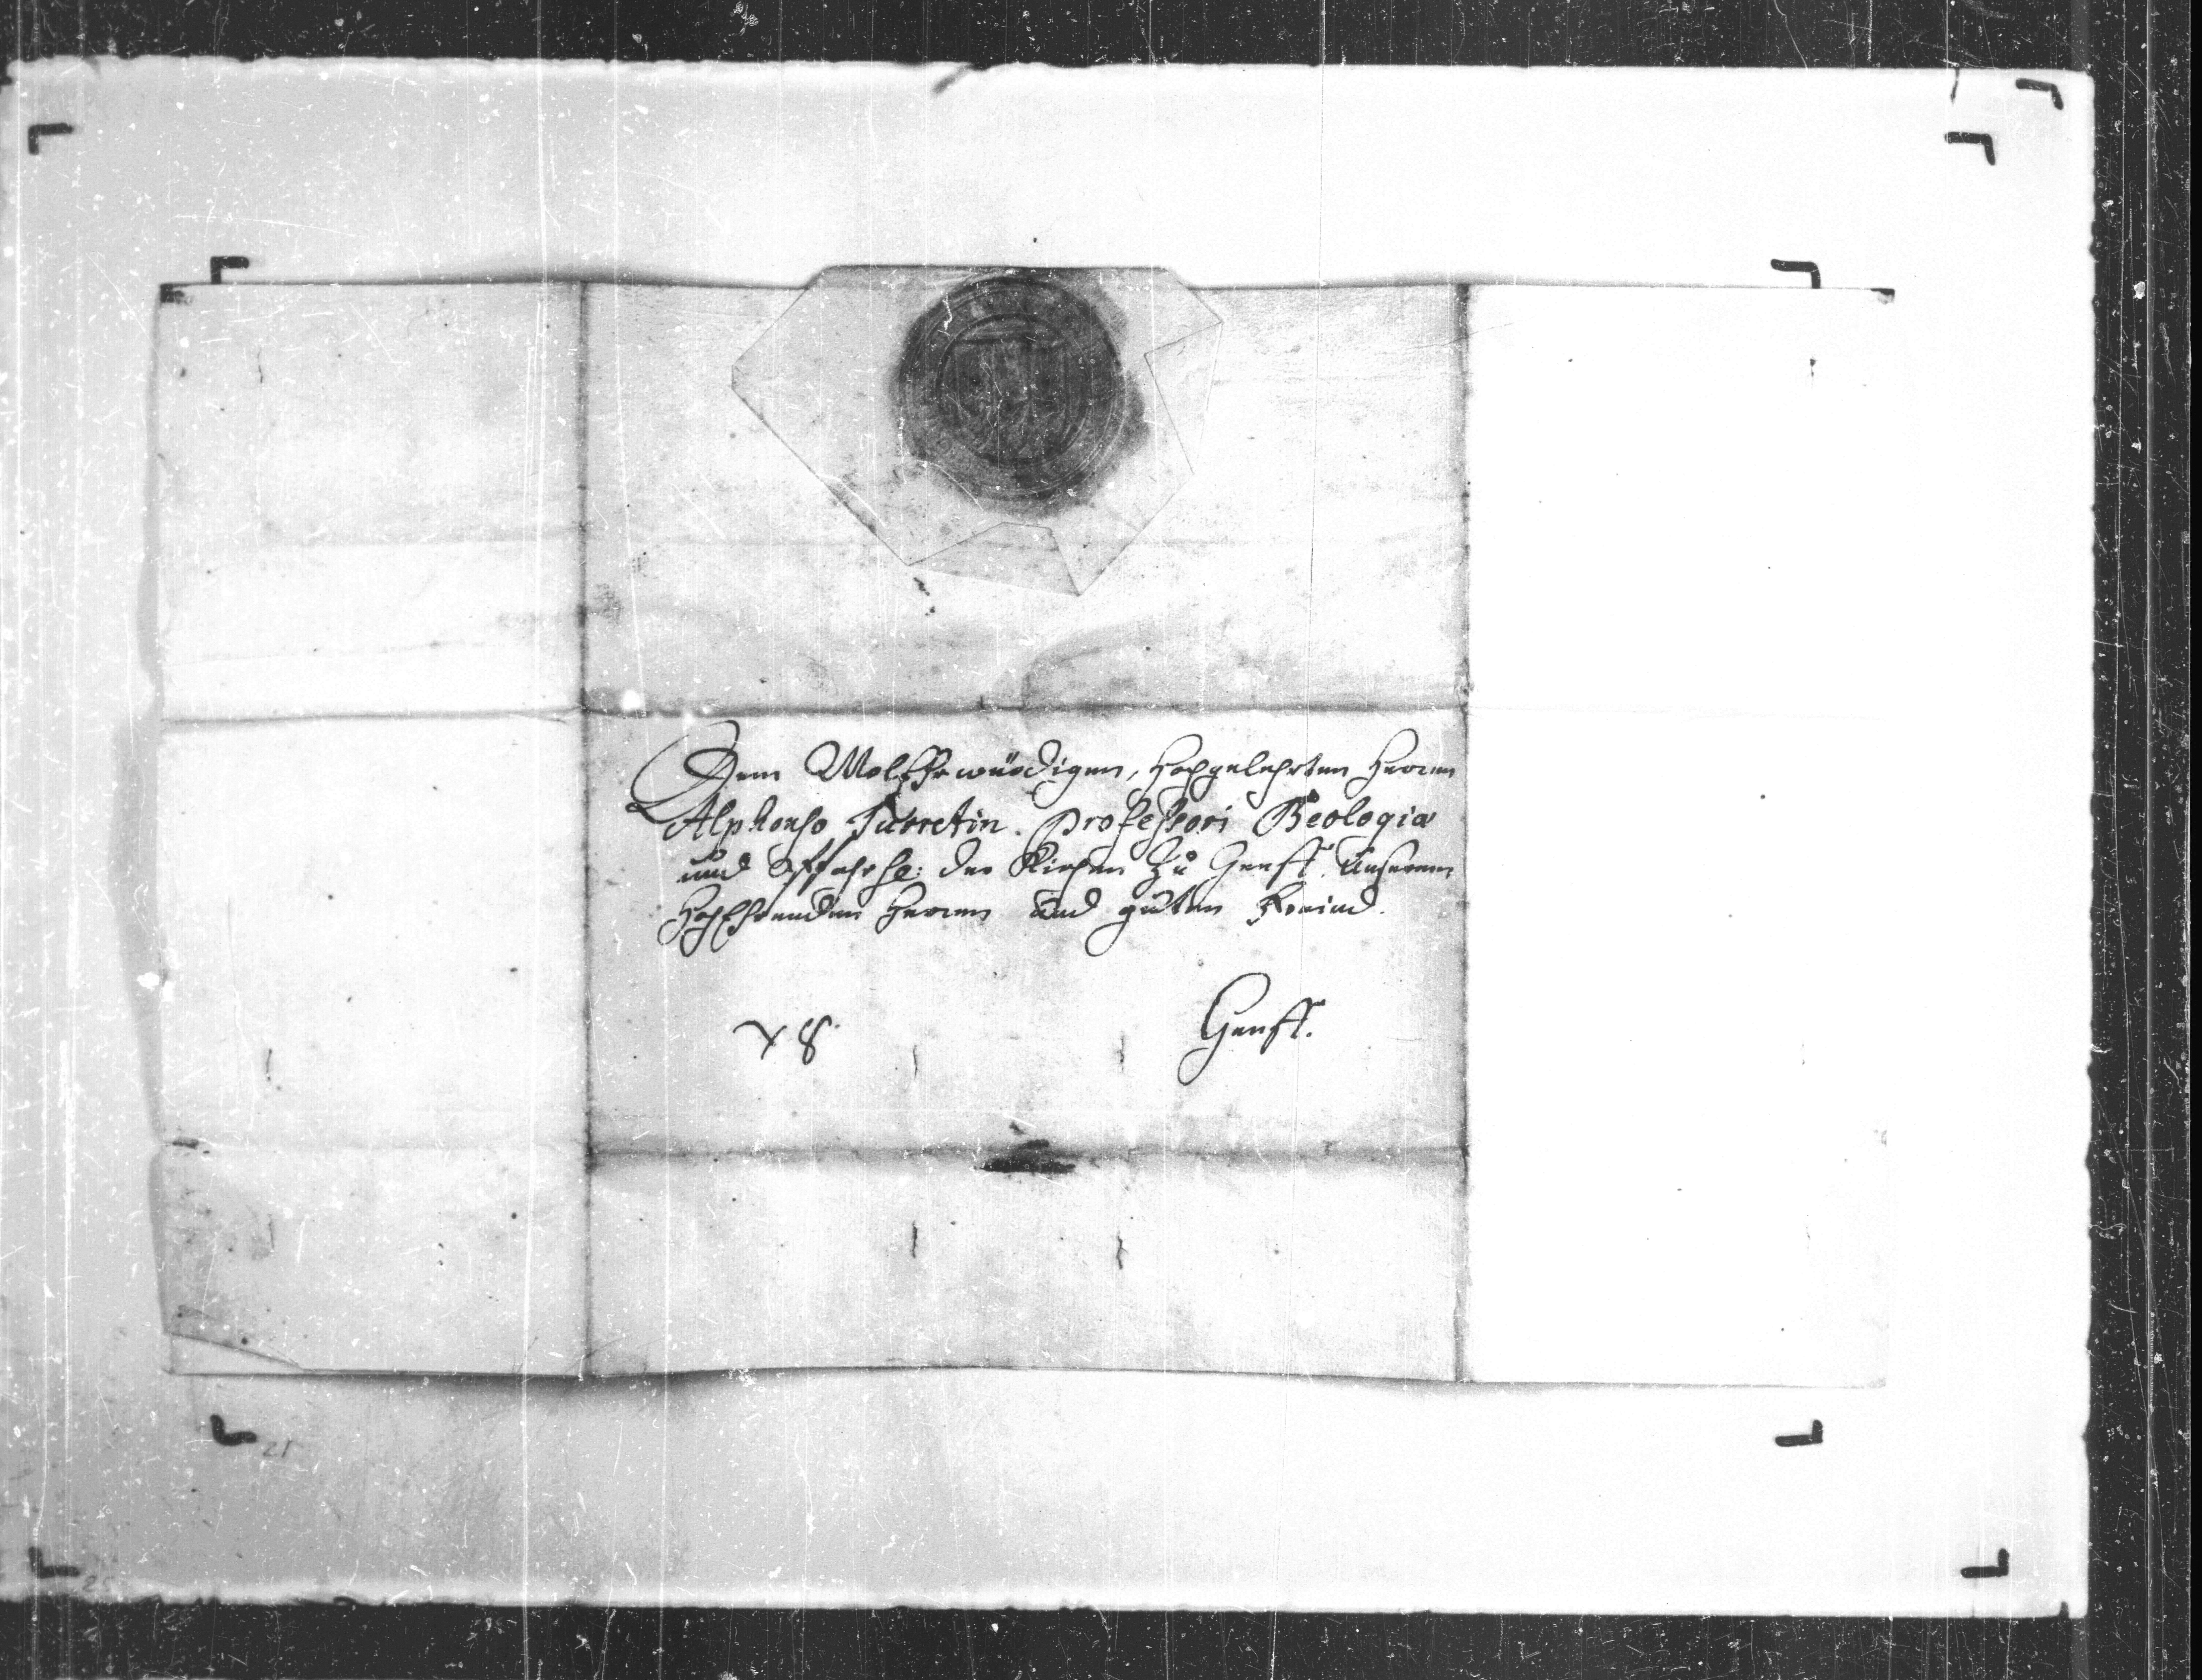 Dem WolEhrwürdigen, Hochgelehrten Herren
Alphonso Turretin. Professori Theologiæ
und Pfahrhe: der Kirchen Zu Genff. Unserem
HochEhrenden Herren und guten Freünd.
Genff.
21
25